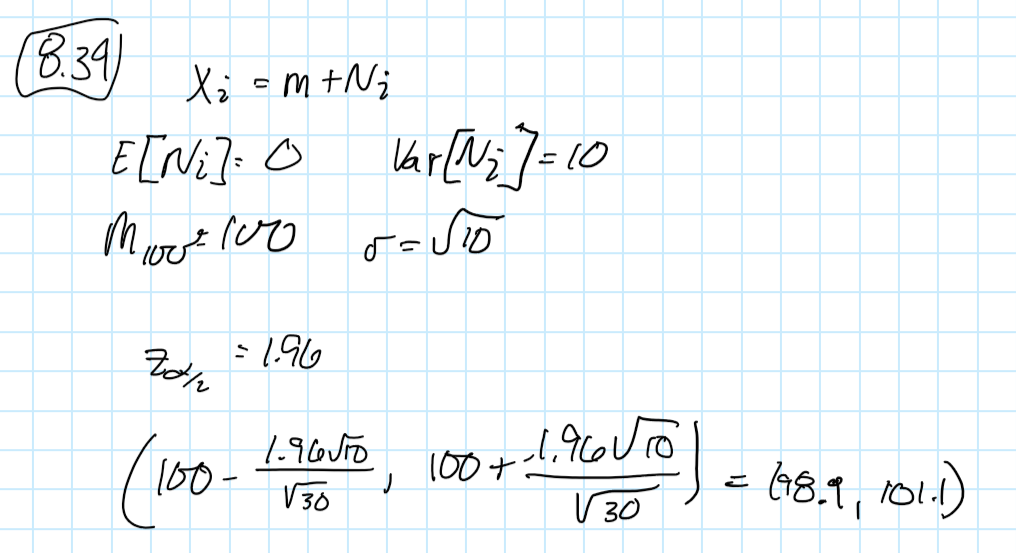 8.39
X_i = m + N_i
E[N_i] = 0 Var[N_i] = 10
M_100 = 100 σ = √10
z_α/2 = 1.96
(100 - 1.96√10/√30, 100 + 1.96√10/√30) = (98.9, 101.1)